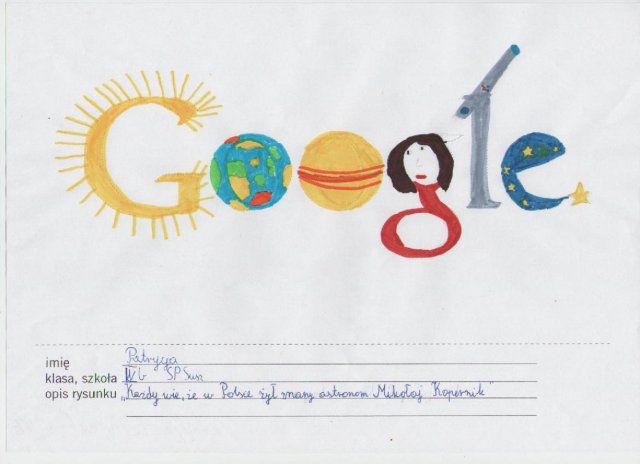 Google
imię Patrycja
klasa, szkoła IV b SP Susz
opis rysunku „Każdy wie, że w Polsce żył znany astronom Mikołaj Kopernik"